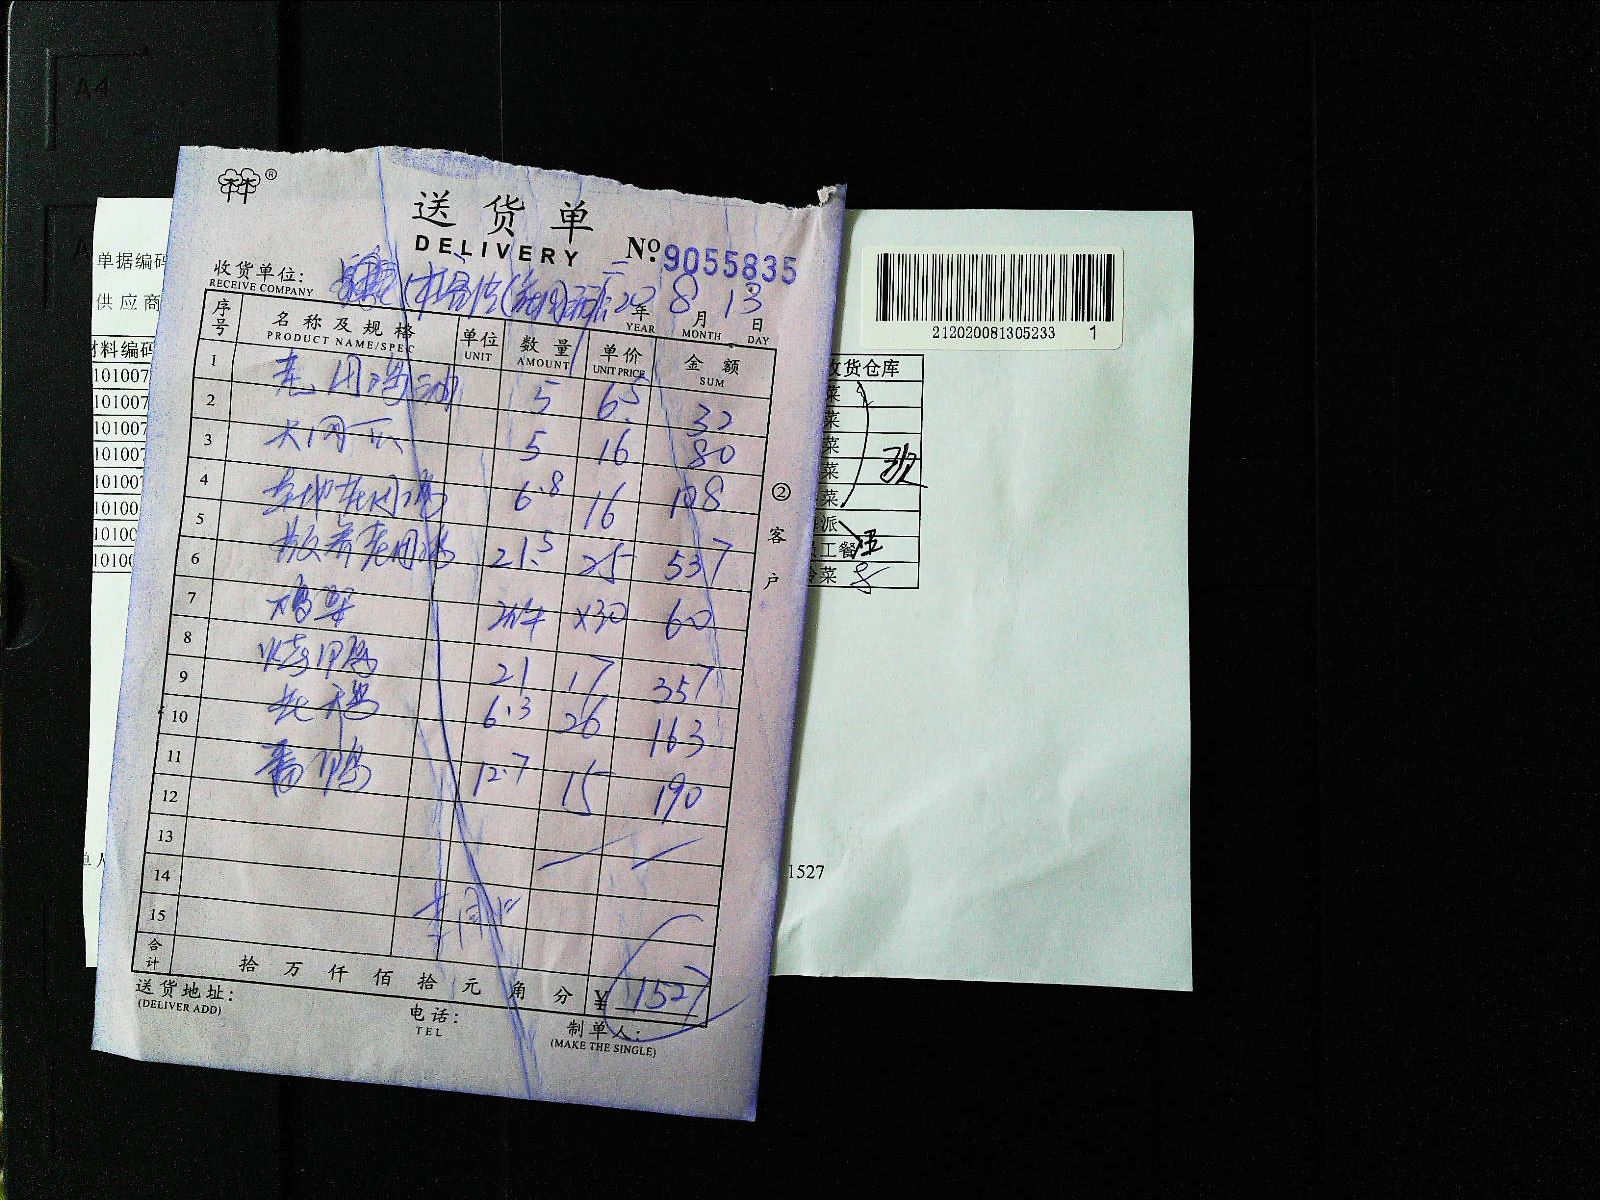 A4
送货单
DELIVERY
No. 9055835
收货单位:
RECEIVE COMPANY
20年 8月 13日
YEAR MONTH DAY
序号 名称及规格 单位 数量 单价 金额
PRODUCT NAME/SPEC UNIT AMOUNT UNIT PRICE SUM
1 5 6.5 32
2
3 5 16 80
4 6.8 16 108
5 散养老母鸡 21.5 25 537
6
7 鸡架 2件 ×30 60
8 21 17 357
9 6.3 26 163
10
11 番鸭 12.7 15 190
12
13
14
15
合计 拾 万 仟 佰 拾 元 角 分 ¥ 1527
送货地址:
(DELIVER ADD)
电话:
TEL
制单人:
(MAKE THE SINGLE)
② 客户
单据编码
供应商
材料编码
101007
101007
101007
101007
101007
10100
10100
10100
212020081305233 1
收货仓库
菜
菜
菜
菜
菜
派
员工餐
冷菜
单人
1527